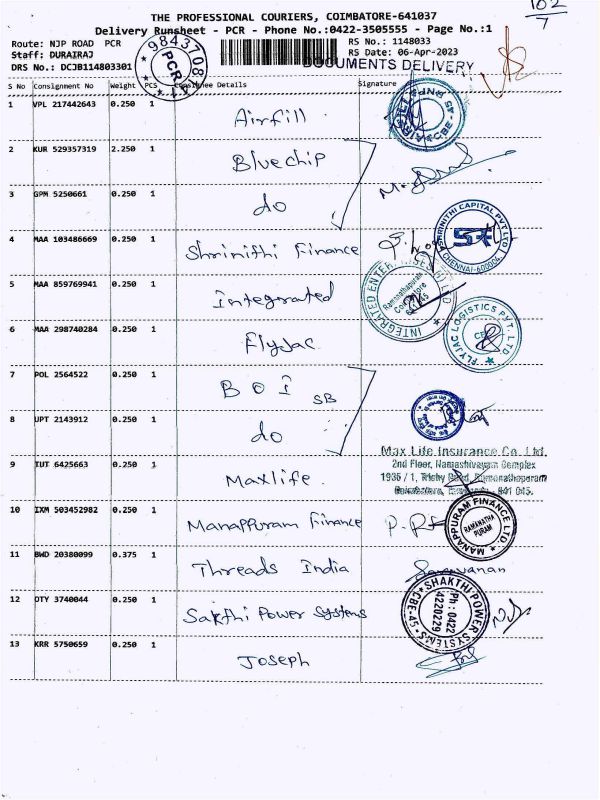 102
7
THE PROFESSIONAL COURIERS, COIMBATORE-641037
Delivery Runsheet - PCR - Phone No.:0422-3505555 - Page No.:1
Route: NJP ROAD PCR
RS No.: 1148033
Staff: DURAIRAJ
RS Date: 06-Apr-2023
DRS No.: DCJB114803301
DOCUMENTS DELIVERY
PCR
S No Consignment No Weight PCS Consignee Details Signature
1 VPL 217442643 0.250 1 Airfill
2 KUR 529357319 2.250 1 Bluechip
3 GPM 5250661 0.250 1 do
4 MAA 103486669 0.250 1 Shrinithi Finance
SHRINITHI CAPITAL PVT LTD
CHENNAI-600006
5 MAA 859769941 0.250 1 Integrated
INTEGRATED ENTERPRISES LTD
Ramanathapuram
Coimbatore
641 045
6 MAA 298740284 0.250 1 Flyjac
FLYJAC LOGISTICS PVT. LTD
7 POL 2564522 0.250 1 BOI SB
8 UPT 2143912 0.250 1 do
Max Life Insurance Co. Ltd.
2nd Floor, Namashivayam Complex
1936 / 1, Trichy Road, Ramanathapuram
Coimbatore, 641 045.
9 IUT 6425663 0.250 1 Maxlife.
10 IXM 503452982 0.250 1 Manappuram Finance
MANAPPURAM FINANCE LTD.
RAMANATHA
PURAM
11 BWD 20380099 0.375 1 Threads India Saravanan
12 OTY 3740044 0.250 1 Sakthi Power Systems
SHAKTHI POWER SYSTEMS
CBE-45
Ph : 0422
4220229
13 KRR 5750659 0.250 1 Joseph